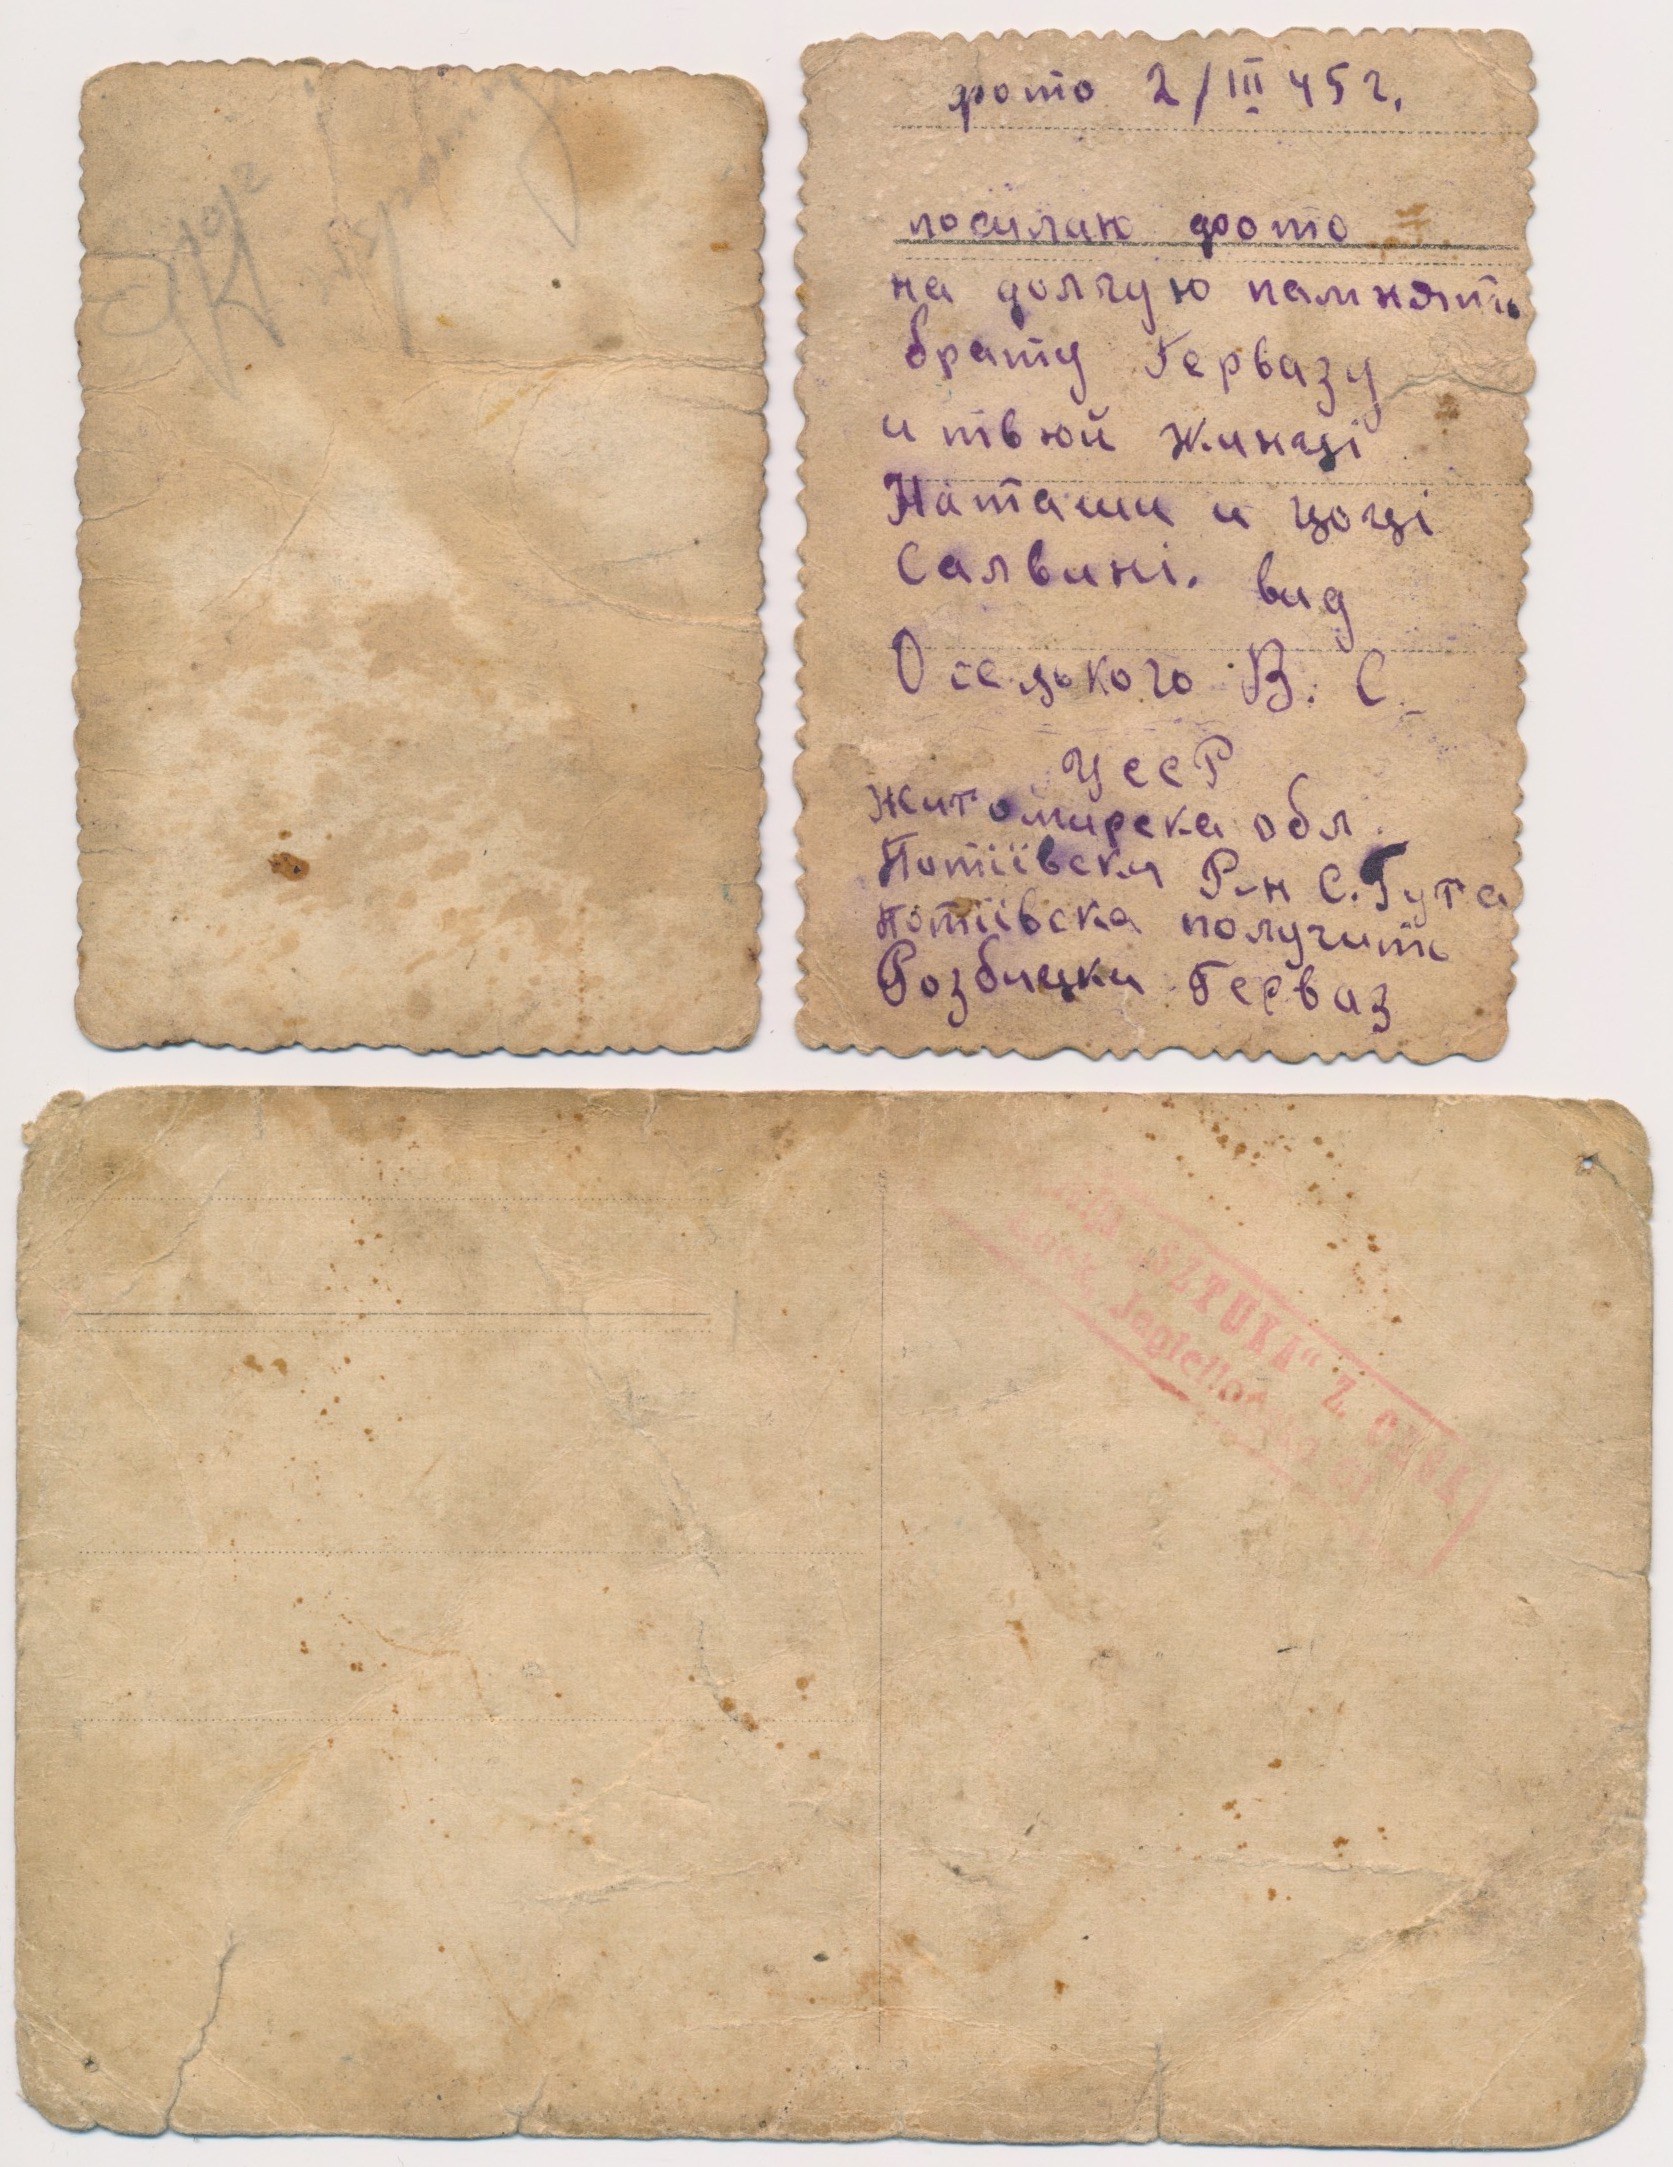 фото 2/III 45 г.
посилаю фото
на долгую памнять
брату Гервазу
и твюй жинці
Наташи и цоці
Салвині. вид
Оседького В. С.
УССР
Житомирска обл.
Потіївски Р-н С. Гута
Потіївска получить
Розбицки Герваз
"SZTUKA" Z.
Jagiellońska